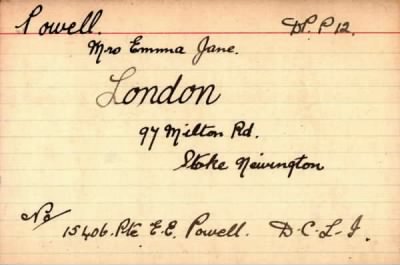 Powell. D.P. P 12.
Mrs Emma Jane.
London
97 Milton Rd.
Stoke Newington
No/
15406. Pte E.E. Powell. D.C.L.I.